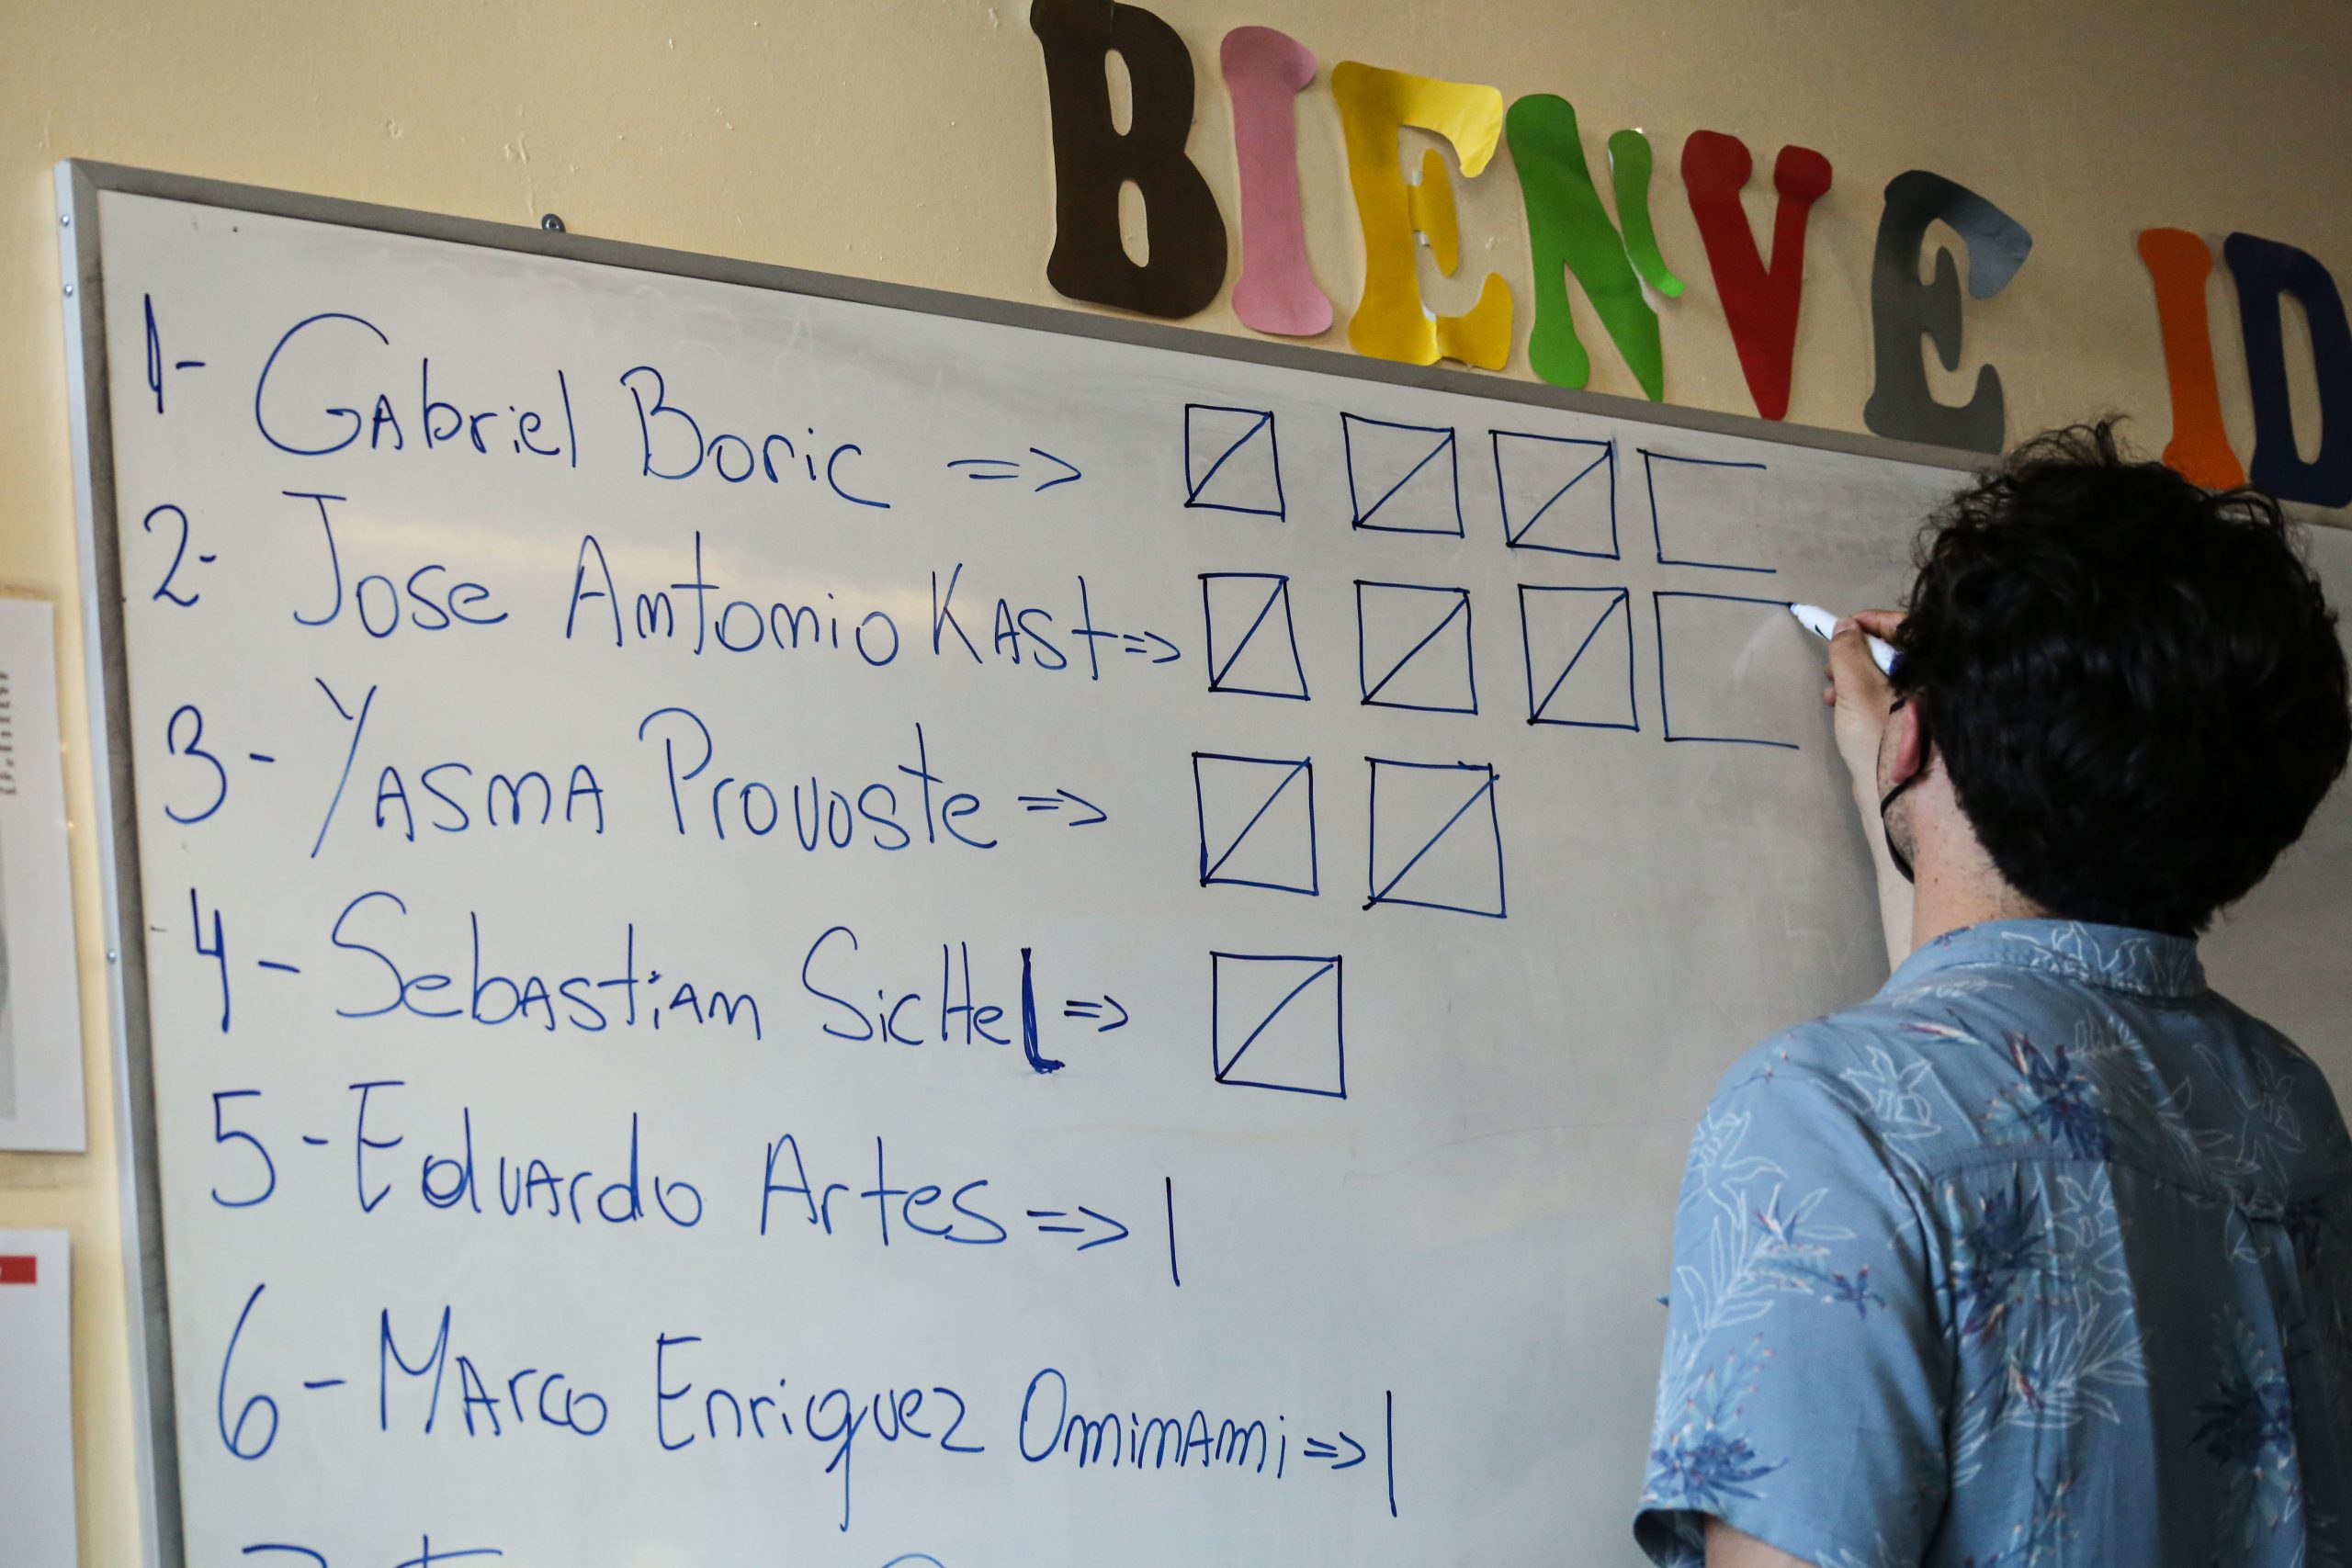 BIENVE ID
1- GAbriel Boric =>
2- Jose Antonio KASt =>
3- YASMA Provoste =>
4- SebAStiAn SicHel =>
5- EduArdo Artes => |
6- MArco Enriquez OminAmi => |